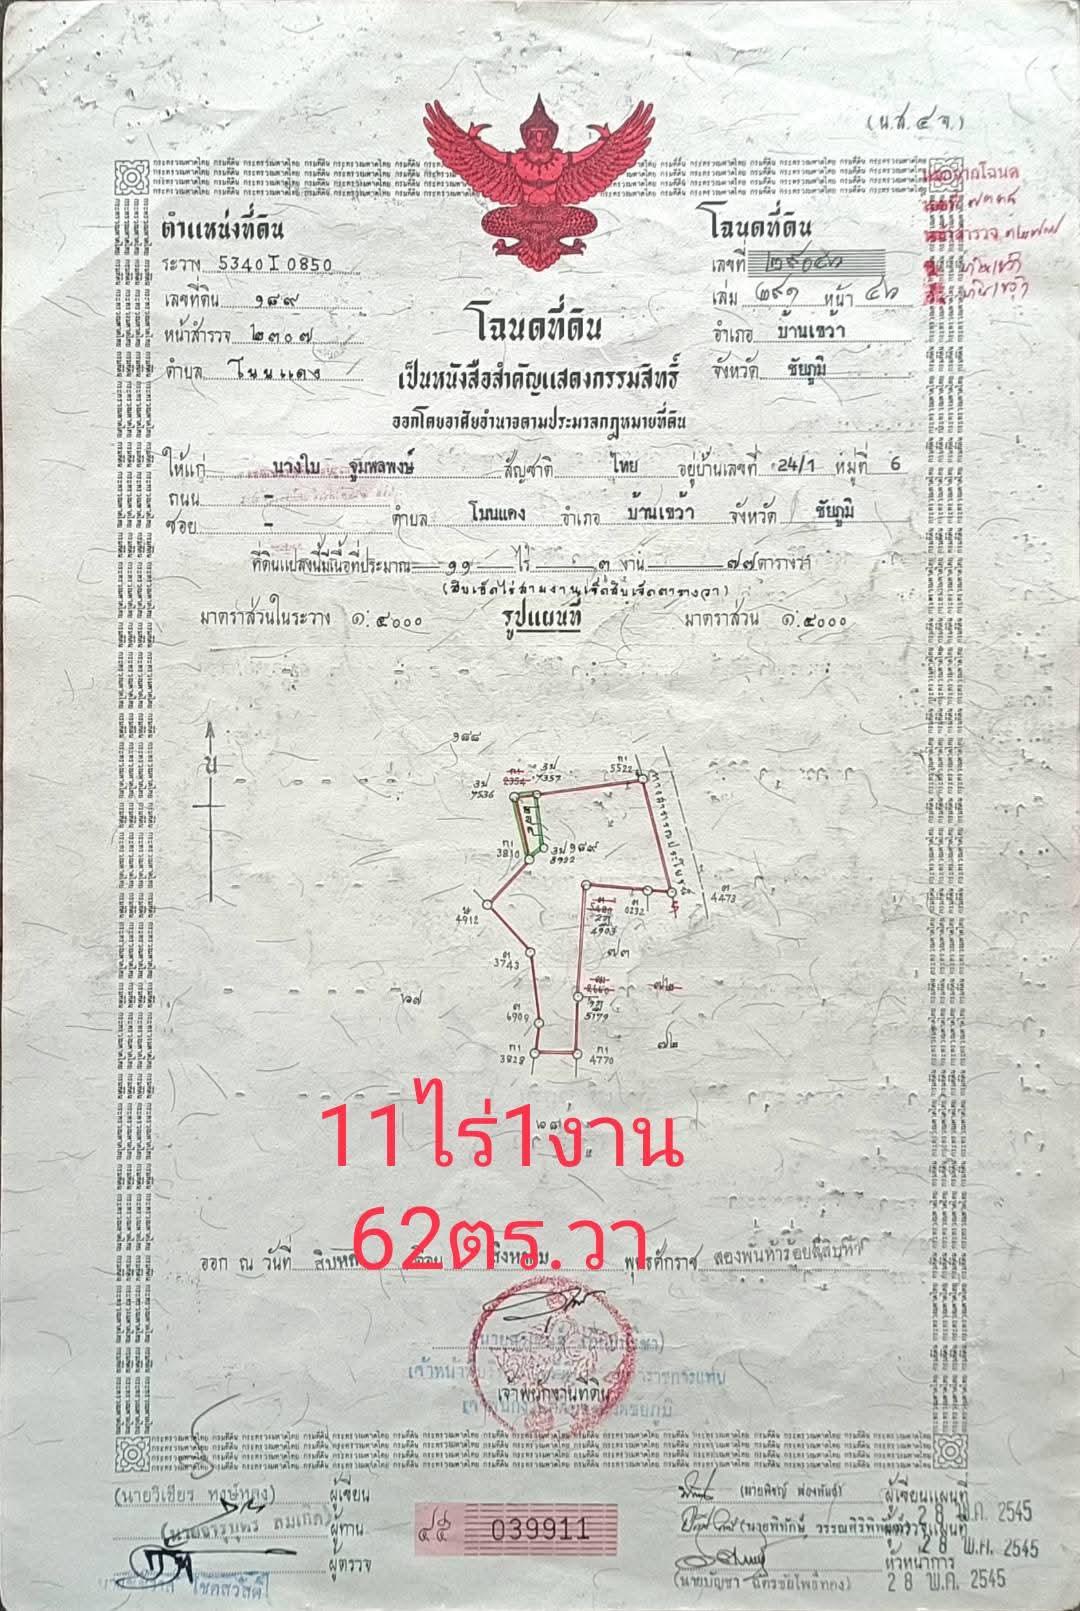 (น.ส.๔ จ.)
ตำแหน่งที่ดิน
ระวาง 5340 I 0850
เลขที่ดิน ๑๘๙
หน้าสำรวจ ๒๓๐๗
ตำบล โนนแดง
โฉนดที่ดิน
เลขที่
เล่ม ๒๙๑ หน้า ๔๖
อำเภอ บ้านเขว้า
จังหวัด ชัยภูมิ
โฉนดที่ดิน
เป็นหนังสือสำคัญแสดงกรรมสิทธิ์
ออกโดยอาศัยอำนาจตามประมวลกฎหมายที่ดิน
ให้แก่ นางใบ จูมพลพงษ์ สัญชาติ ไทย อยู่บ้านเลขที่ 24/1 หมู่ที่ 6
ถนน –
ซอย – ตำบล โนนแดง อำเภอ บ้านเขว้า จังหวัด ชัยภูมิ
ที่ดินแปลงนี้มีเนื้อที่ประมาณ ๑๑ ไร่ ๓ งาน ๗๗ ตารางวา
(สิบเอ็ดไร่สามงานเจ็ดสิบเจ็ดตารางวา)
มาตราส่วนในระวาง ๑:๔๐๐๐ รูปแผนที่ มาตราส่วน ๑:๔๐๐๐
น
๑๘๘
5522
7357
2354
7536
3810
8922
๑๘๙
ทางสาธารณประโยชน์
4473
0232
4903
4912
3743
๗๓
5179
๗๒
๖๗
6909
๗๒
3828
4770
11ไร่1งาน
62ตร.วา
ออก ณ วันที่ เดือน สิงหาคม พุทธศักราช สองพันห้าร้อยสี่สิบห้า
เจ้าพนักงานที่ดิน
(นายวิเชียร ทงษ์ทอง) ผู้เขียน
ผู้ทาน
ผู้ตรวจ
โชคสวัสดิ์
๔๕ 039911
ผู้เขียนแผนที่
28 พ.ค. 2545
ผู้ตรวจแผนที่
28 พ.ค. 2545
หัวหน้าการ
28 พ.ค. 2545